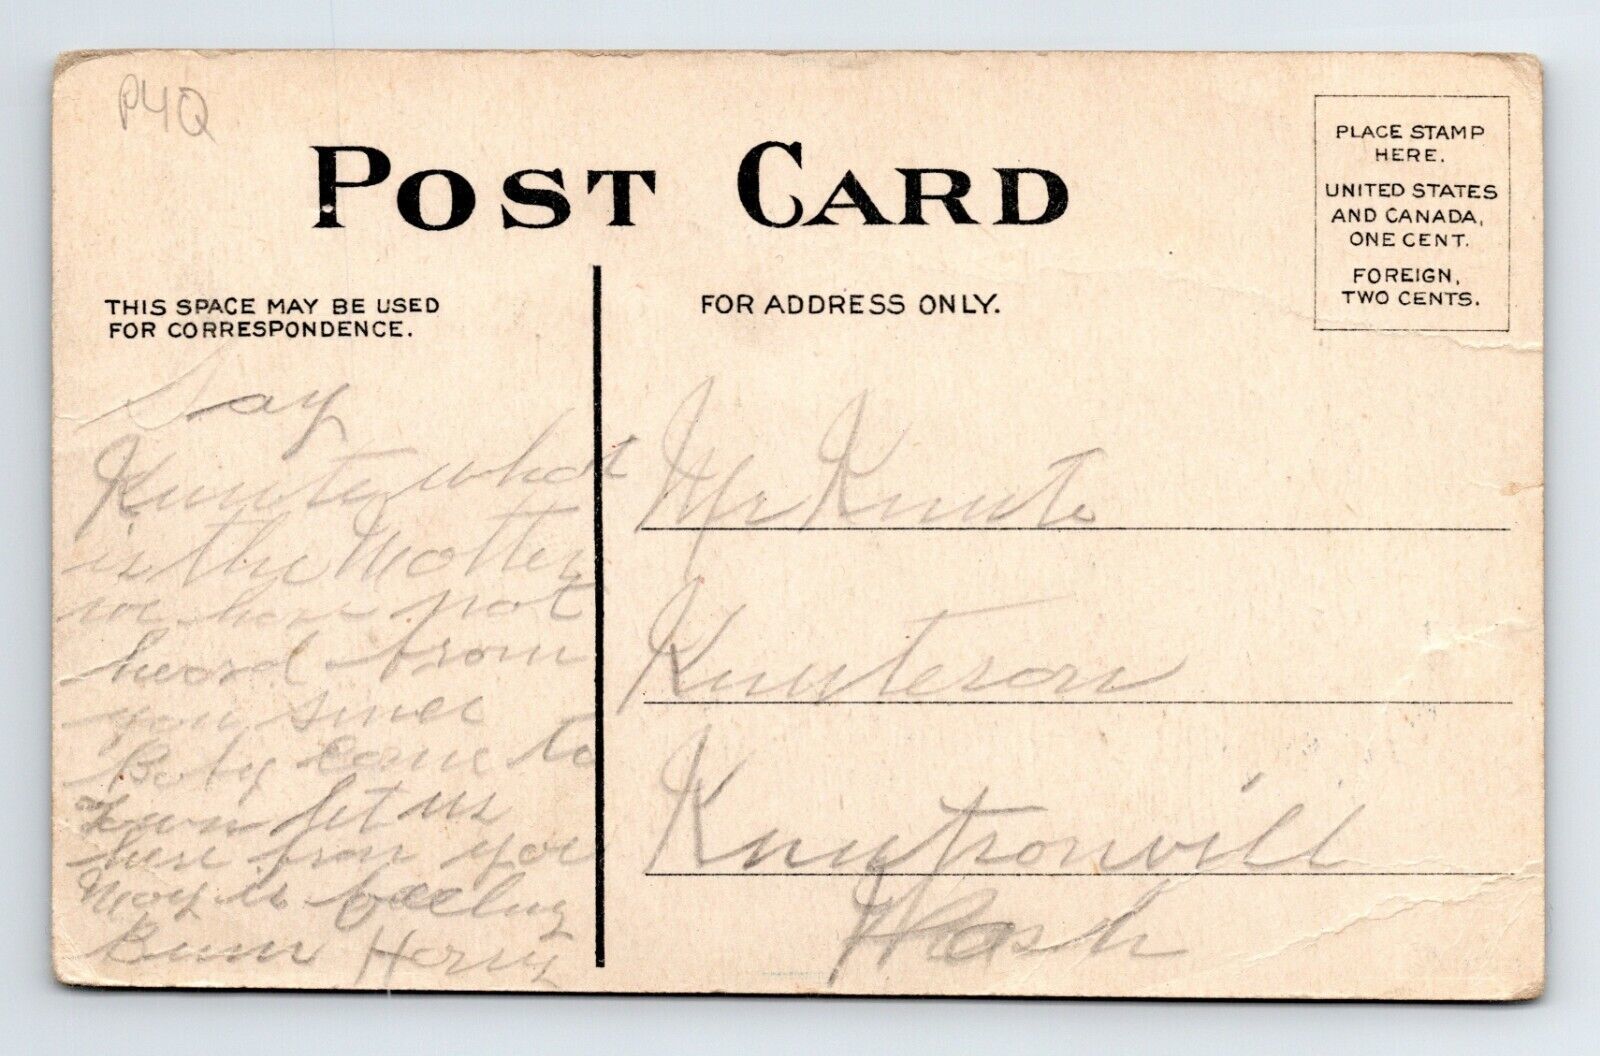 P4Q
POST CARD
PLACE STAMP
HERE.
UNITED STATES
AND CANADA,
ONE CENT.
FOREIGN,
TWO CENTS.
THIS SPACE MAY BE USED
FOR CORRESPONDENCE.
FOR ADDRESS ONLY.
Say
Knute what
is the Motter
we have not
heard from
you since
Boby Come to
town let us
here from you
May is feeling
Bum Harry
Mr Knute
Knuteson
Knutronvill
Wash